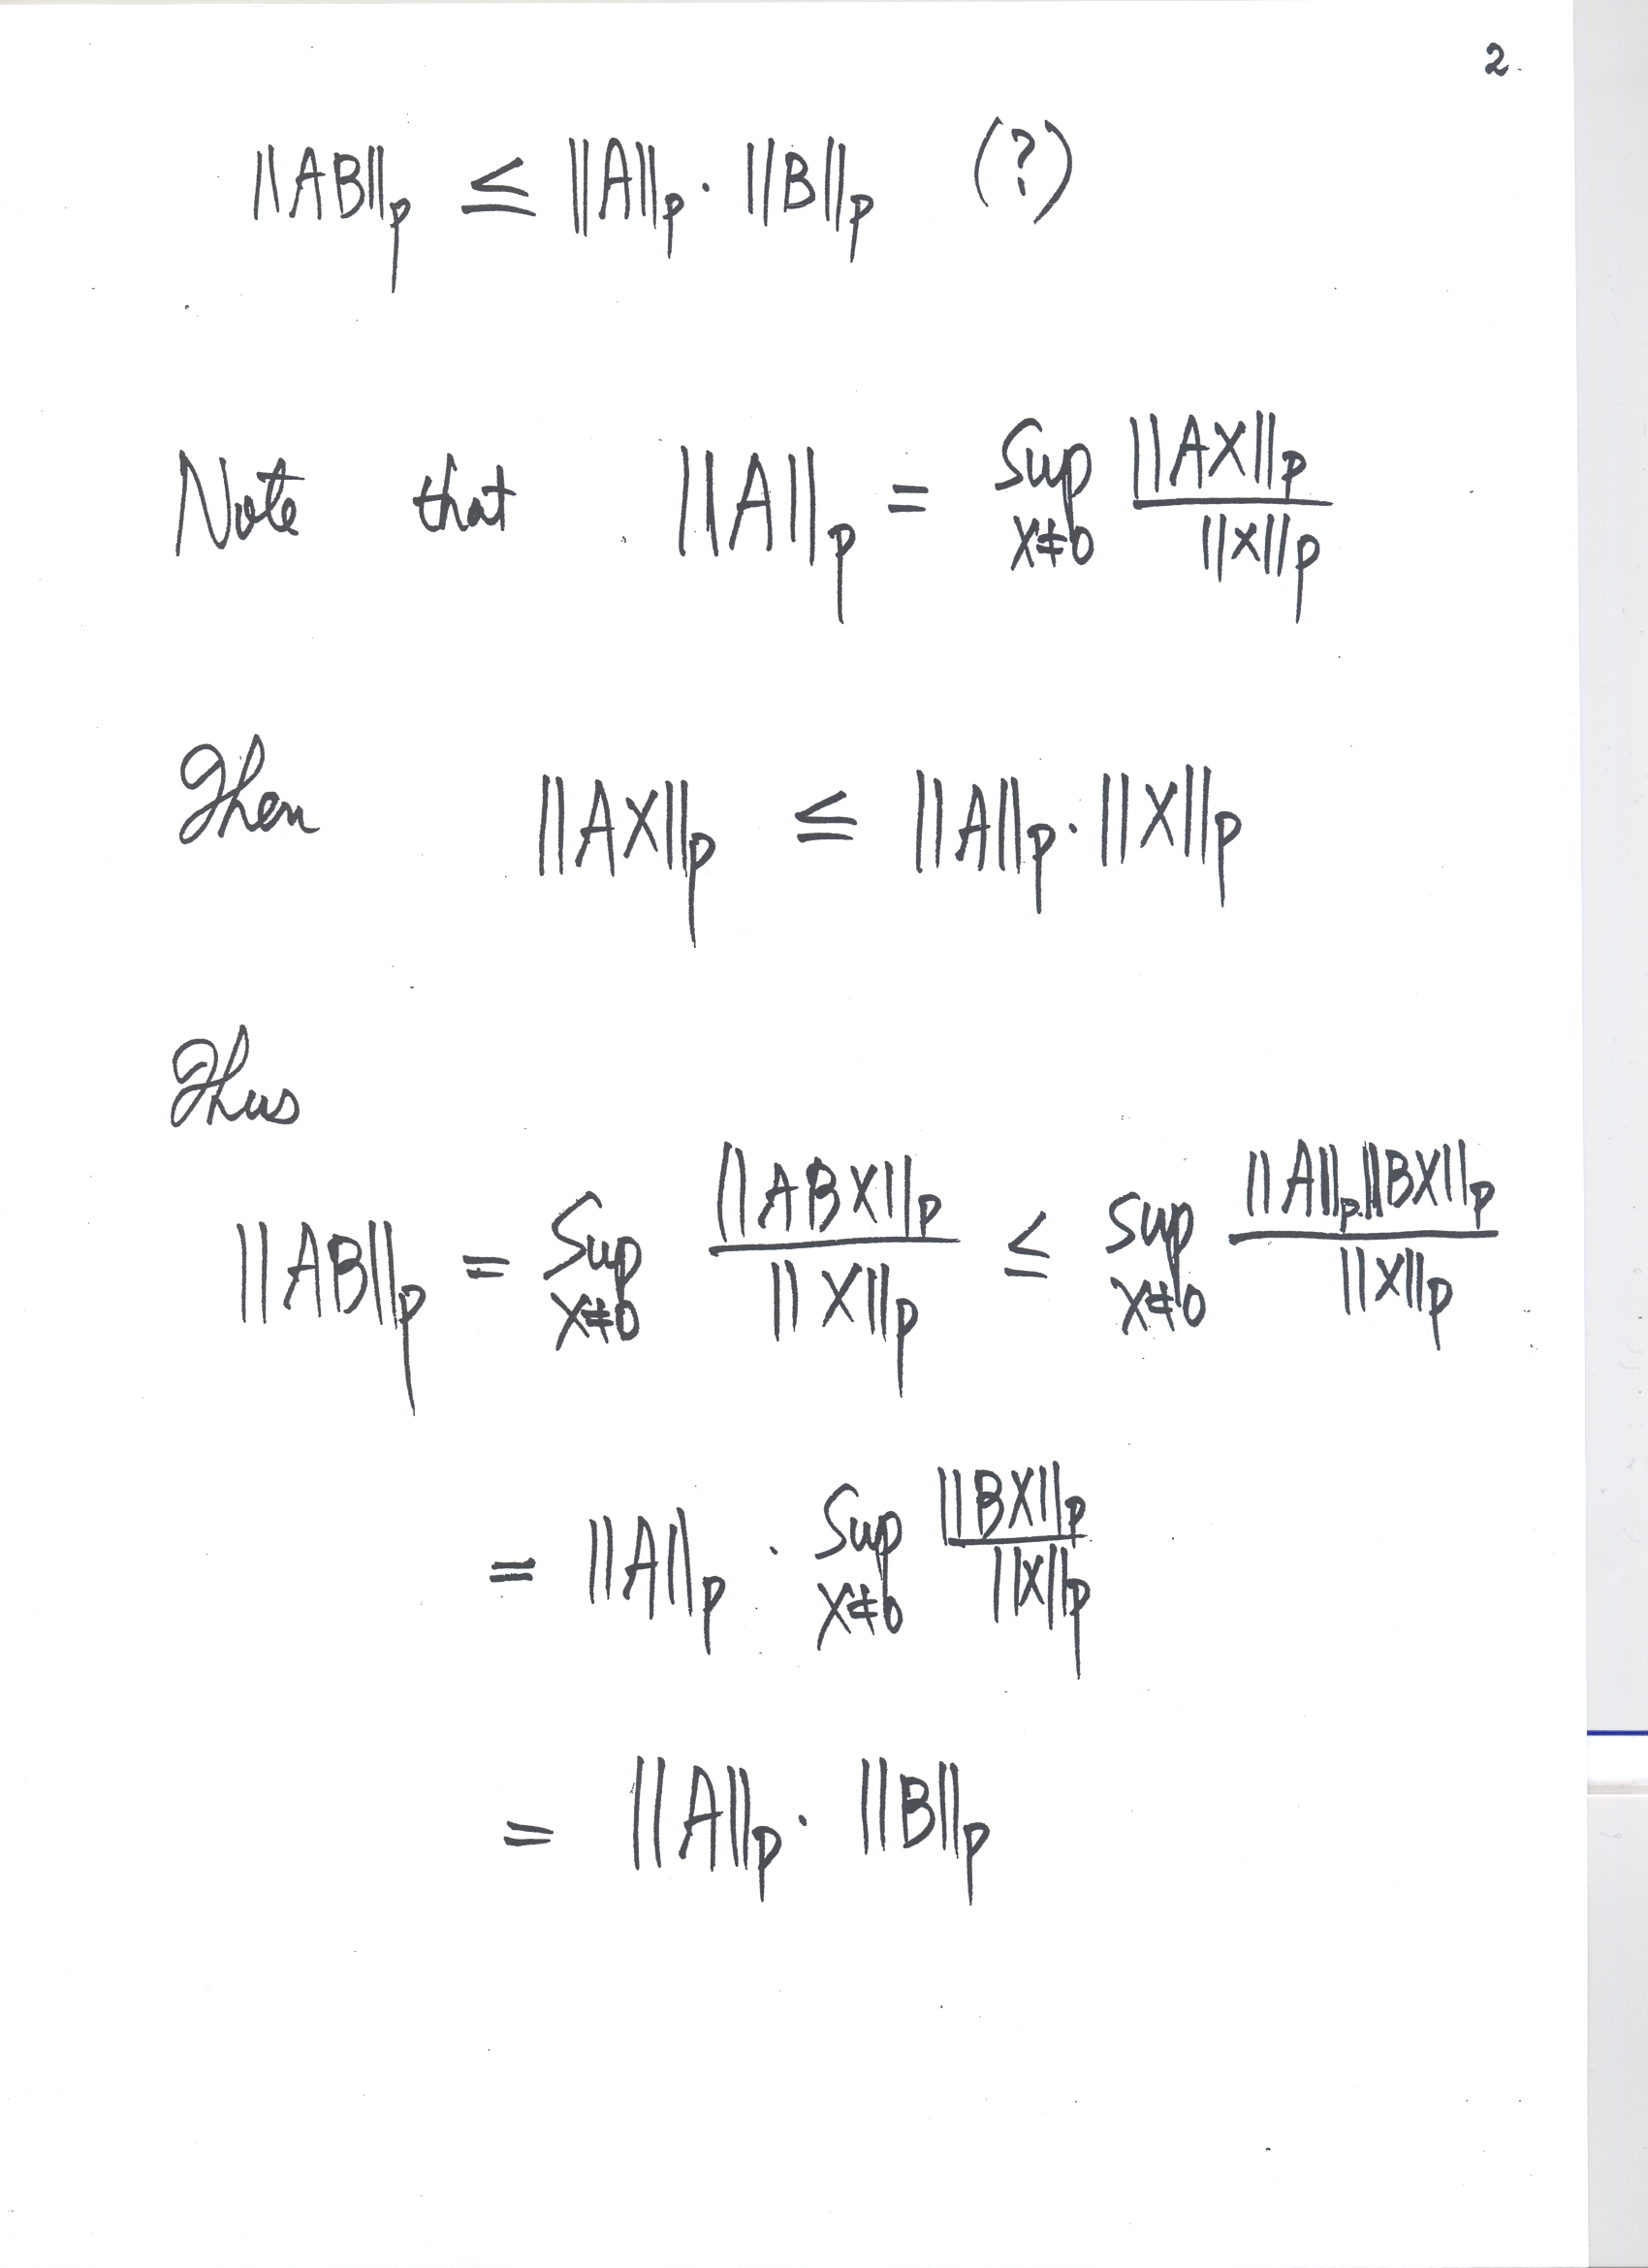 2.
||AB||_p ≤ ||A||_p · ||B||_p (?)
Note that ||A||_p = Sup_{X≠0} ||AX||_p / ||X||_p
Then ||AX||_p ≤ ||A||_p · ||X||_p
Thus
||AB||_p = Sup_{X≠0} ||ABX||_p / ||X||_p ≤ Sup_{X≠0} ||A||_p ||BX||_p / ||X||_p
= ||A||_p · Sup_{X≠0} ||BX||_p / ||X||_p
= ||A||_p · ||B||_p